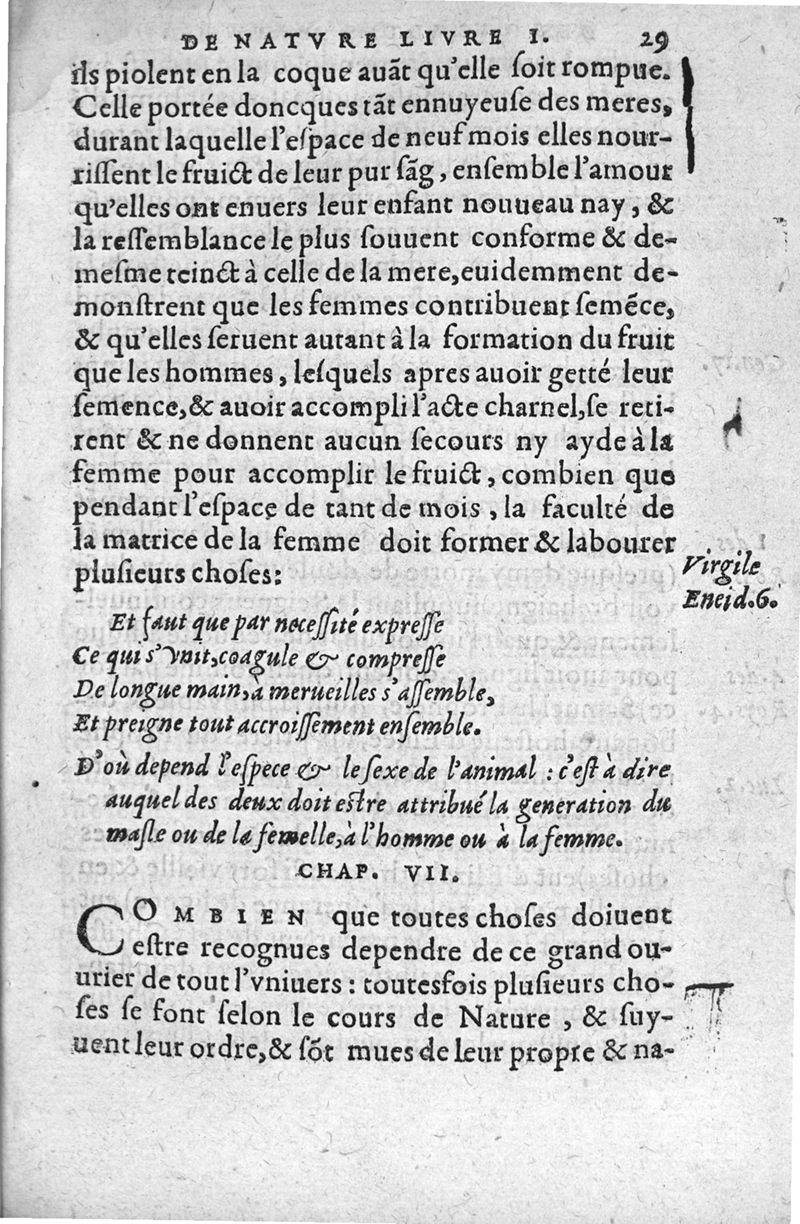 DE NATVRE LIVRE I. 29
ils piolent en la coque auãt qu'elle ſoit rompue.
Celle portée doncques tãt ennuyeuſe des meres,
durant laquelle l'eſpace de neuf mois elles nour-
riſſent le fruict de leur pur ſãg, enſemble l'amour
qu'elles ont enuers leur enfant nouueau nay, &
la reſſemblance le plus ſouuent conforme & de-
meſme teinct à celle de la mere, euidemment de-
monſtrent que les femmes contribuent ſemẽce,
& qu'elles ſeruent autant à la formation du fruit
que les hommes, leſquels apres auoir getté leur
ſemence, & auoir accompli l'acte charnel, ſe reti-
rent & ne donnent aucun ſecours ny ayde à la
femme pour accomplir le fruict, combien que
pendant l'eſpace de tant de mois, la faculté de
la matrice de la femme doit former & labourer
pluſieurs choſes:
Virgile
Eneid. 6.
Et faut que par neceſſité expreſſe
Ce qui s'vnit, coagule & compreſſe
De longue main, à merueilles s'aſſemble,
Et preigne tout accroiſſement enſemble.
D'où depend l'eſpece & le ſexe de l'animal : c'eſt à dire
auquel des deux doit eſtre attribué la generation du
maſle ou de la femelle, à l'homme ou à la femme.
CHAP. VII.
COMBIEN que toutes choſes doiuent
eſtre recognues dependre de ce grand ou-
urier de tout l'vniuers : toutesfois pluſieurs cho-
ſes ſe font ſelon le cours de Nature, & ſuy-
uent leur ordre, & ſõt mues de leur propre & na-